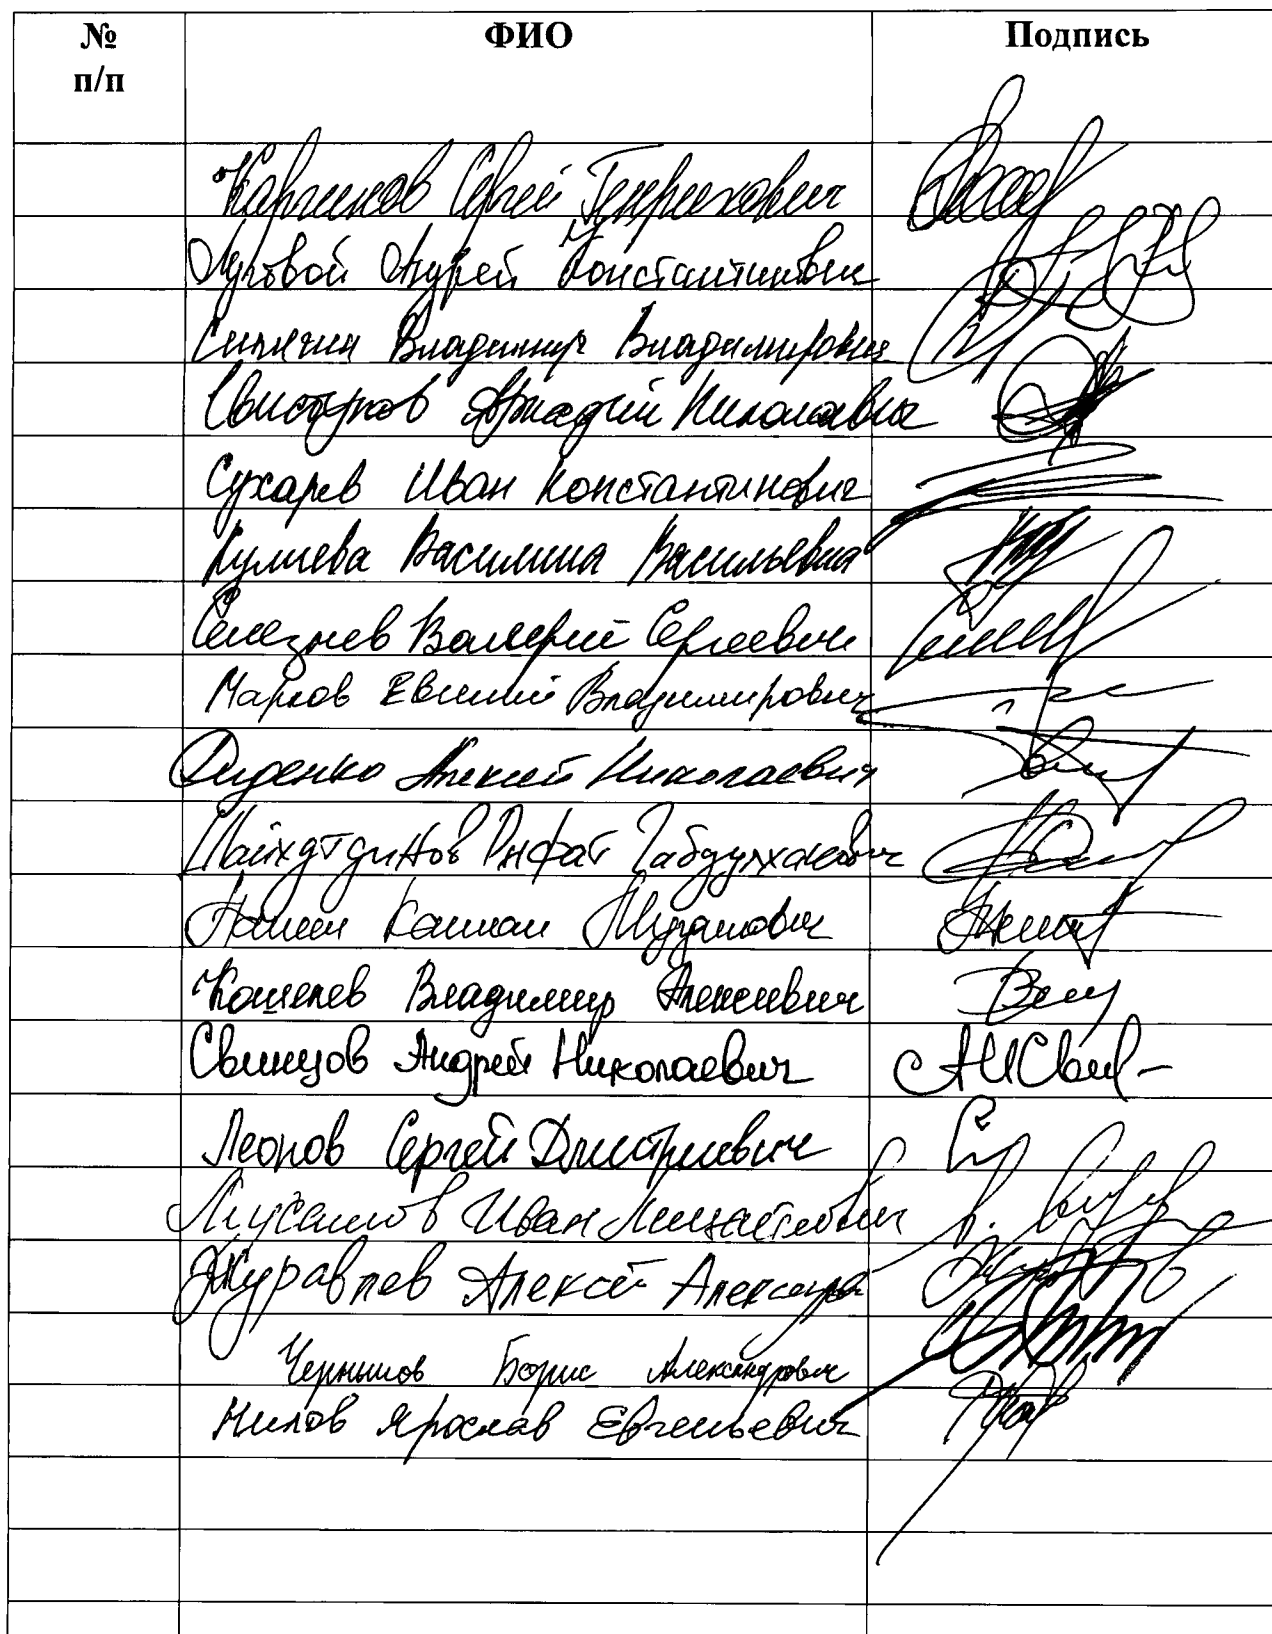 № ФИО Подпись
п/п
Каргинов Сергей Генрихович
Луговой Андрей Константинович
Сипягин Владимир Владимирович
Свистунов Аркадий Николаевич
Сухарев Иван Константинович
Кулиева Василина Васильевна
Селезнев Валерий Сергеевич
Марков Евгений Владимирович
Диденко Алексей Николаевич
Шайхутдинов Рифат Габдулхакович
Панеш Каплан Мугдинович
Кошелев Владимир Алексеевич
Свинцов Андрей Николаевич
Леонов Сергей Дмитриевич
Мусатов Иван Михайлович
Журавлев Алексей
Чернышов Борис Александрович
Нилов Ярослав Евгеньевич